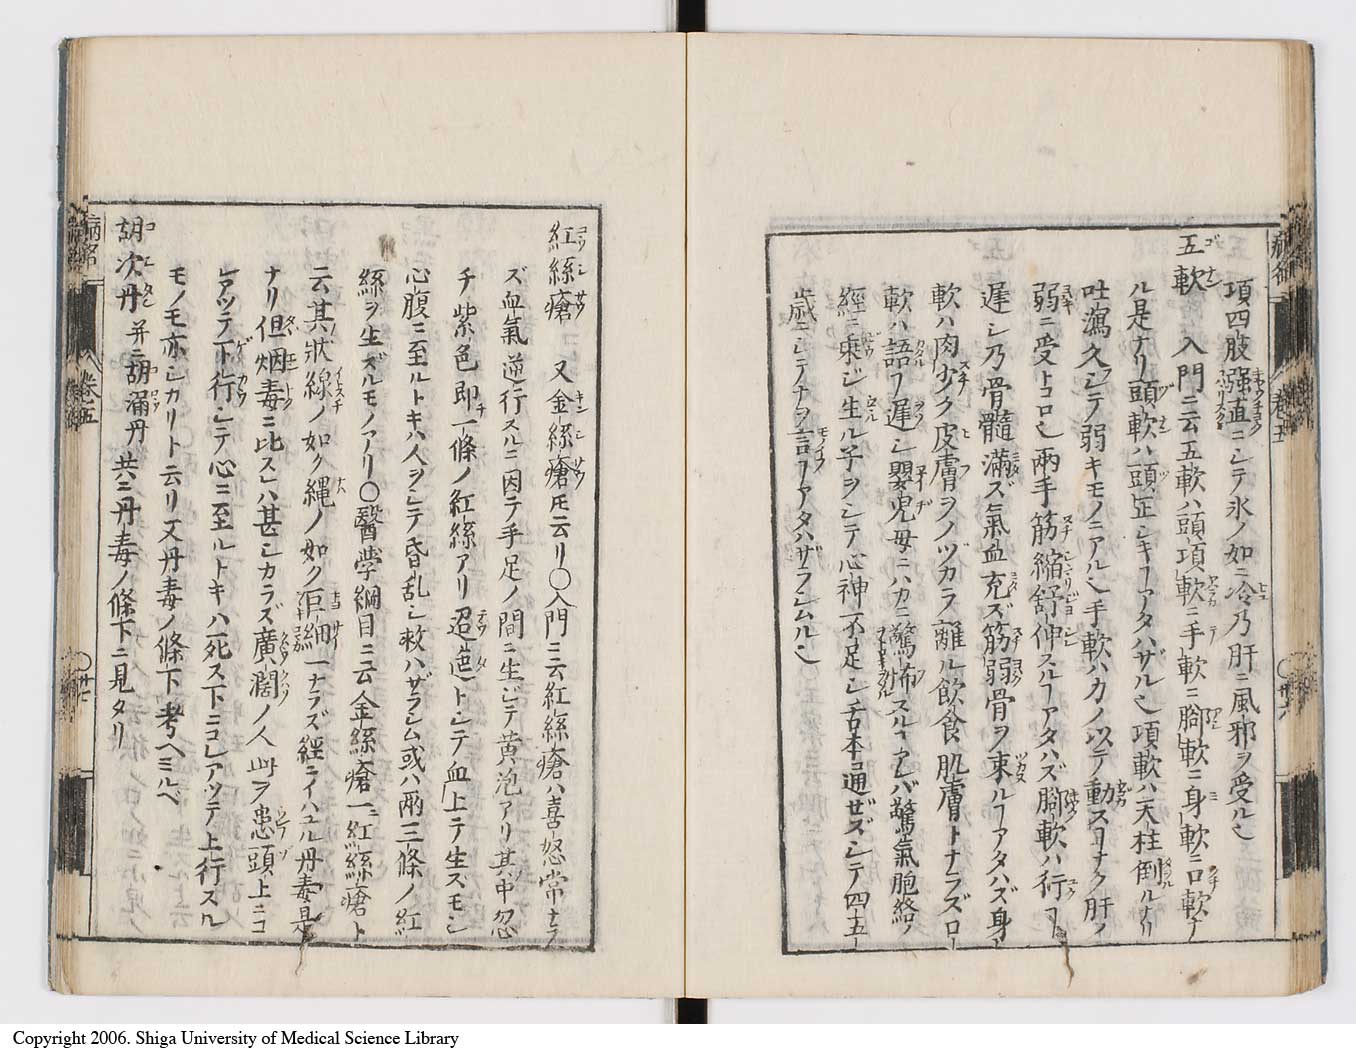 項四肢強直ニシテ氷ノ如ニ冷乃肝ニ風邪ヲ受ル也
五軟 入門ニ云五軟ハ頭項軟ニ手軟ニ脚軟ニ身軟ニ口軟ナ
ル是ナリ頭軟ハ頭正シキヿアタハザル也項軟ハ天柱倒ルナリ
吐瀉久シテ弱キモノニアル也手軟ハカノ以テ動スヿナク肝ノ
弱ニ受トコロ也兩手筋縮舒伸スルヿアタハズ脚軟ハ行ヿ
遅シ乃骨髓滿ズ氣血充ズ筋弱骨ヲ束ルヿアタハズ身
軟ハ肉少ク皮膚ヲノツカラ離ル飲食肌膚トナラズ口
軟ハ語ヿ遅シ嬰児母ニハカニ驚怖スルヿアレバ驚氣胞絡ノ
經ニ乗ジ生ル子ヲシテ心神不足シ舌本通ゼズシテ四五
歳ニシテナヲ言フアタハザラシムル也
病名 巻五 〇廿六
紅絲瘡 又金絲瘡モ云リ〇入門ニ云紅絲瘡ハ喜怒常ナラ
ズ血氣逆行スルニ因テ手足ノ間ニ生ジテ黄泡アリ其中忽
チ紫色即一條ノ紅絲アリ迢迤トシテ血上テ生スモシ
心腹ニ至ルトキハ人ヲシテ昏乱シ救ハザラシム或ハ兩三條ノ紅
絲ヲ生ズルモノアリ〇醫学綱目ニ云金絲瘡一ニ紅絲瘡ト
云其狀線ノ如ク縄ノ如ク巨細一ナラズ經ニイハユル丹毒是
ナリ但烟毒ニ比スレハ甚シカラズ廣濶ノ人此ヲ患頭上ニコ
レアツテ下行シテ心ニ至ルトキハ死ス下ニコレアツテ上行スル
モノモ亦シカリト云リ又丹毒ノ條下考ヘミルベ
胡次丹 并ニ胡漏丹 共ニ丹毒ノ條下ニ見タリ
病名 巻五 〇廿七
Copyright 2006. Shiga University of Medical Science Library